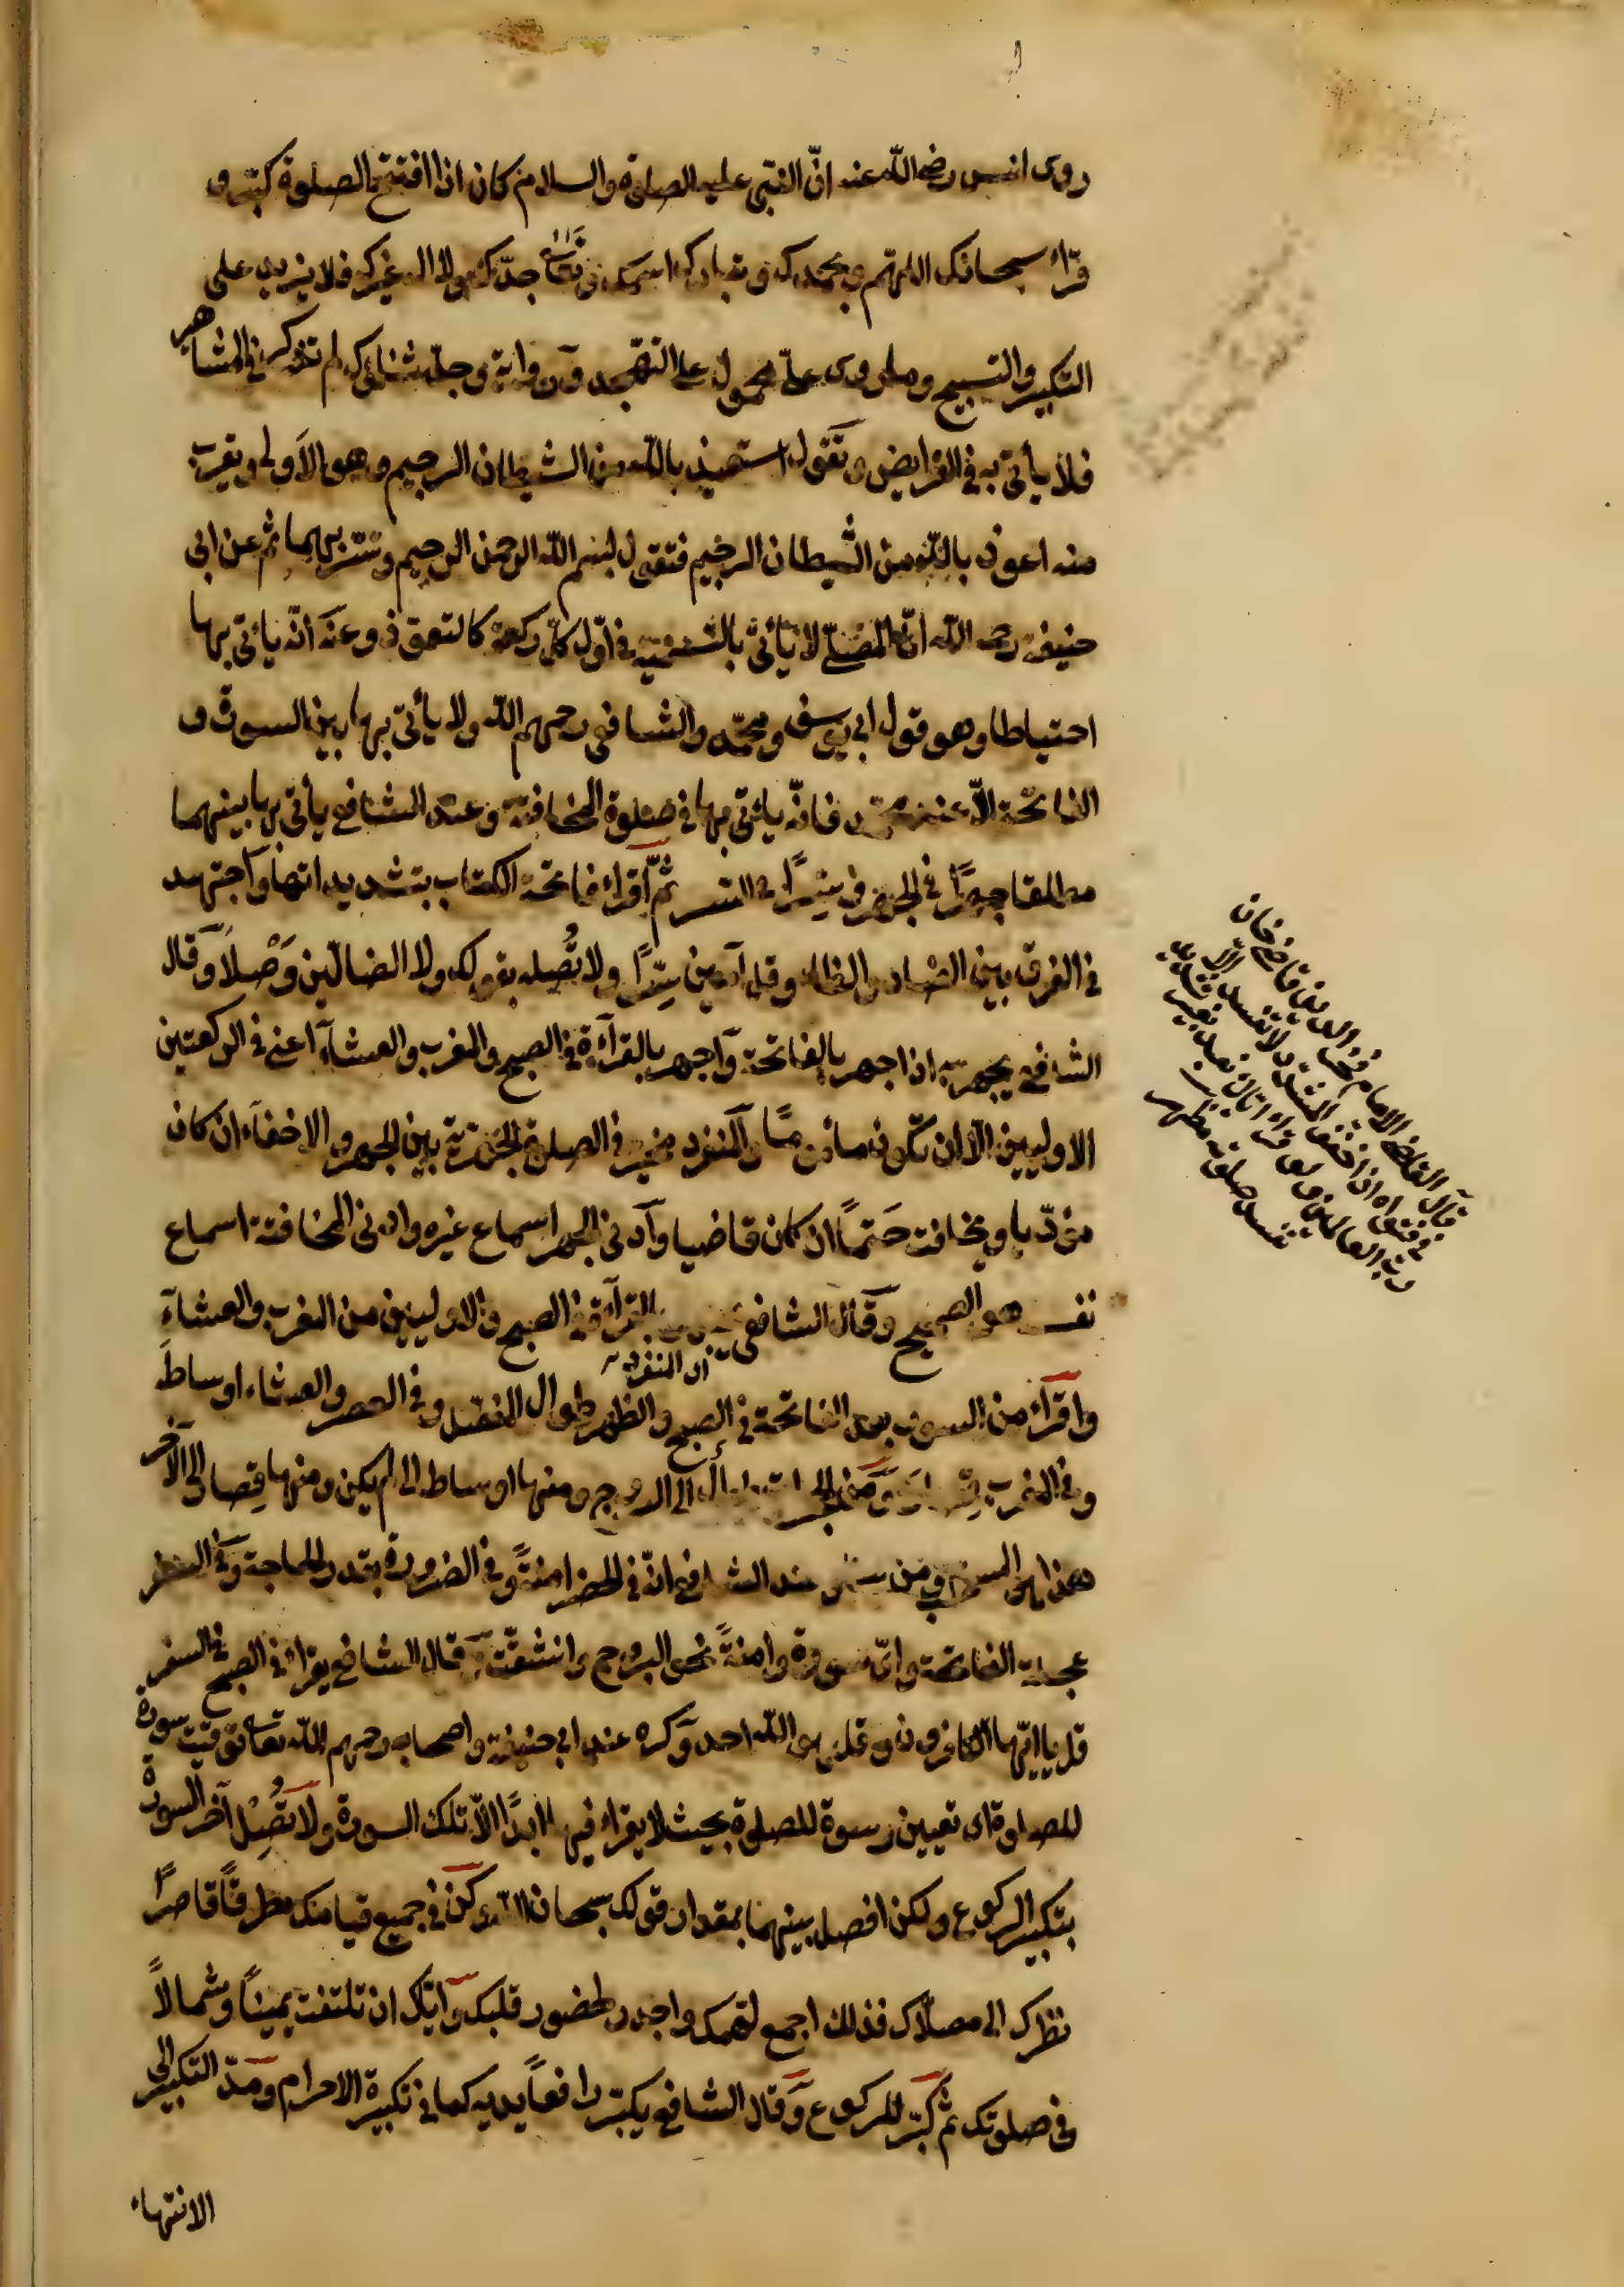 روى انس رضى الله عنه انّ النبّى عليه الصلوة والسلام كان اذا افتتح الصلوة كبّر و
قراء سبحانك اللهمّ وبحمدك وتبارك اسمك وتعالى جدّك ولا اله غيرك فلا يزيد على
التكبير والتسبيح وما روى محمول على التهجّد وان رواية وجلّ ثناؤك لم تذكر في المشاهير
فلا يأتى به في الفرايض وتقول استعيذ بالله من الشيطان الرجيم وهو الاولى ويقرب
منه اعوذ بالله من الشيطان الرجيم فتقول بسم الله الرحمن الرحيم وتسرّ بهما ثم عن ابى
حنيفة رحمه الله انّ المصلّى لا يأتى بالتسمية في اوّل كلّ ركعة كالتعوّذ وعنه انّه يأتى بها
احتياطا وهو قول ابى يوسف ومحمّد والشافعى رحمهم الله ولا يأتى بها بين السورة و
الفاتحة الاّ عند محمّد فانّه يأتى بها في صلوة المخافتة وعند الشافعى يأتى بها بينهما
مطلقا جهرًا في الجهر وسرًّا في السر ثمّ اقراء فاتحة الكتاب بتشديداتها واجتهد
في الفرق بين الضاد والظاء وقل آمين سرًّا ولا تصله بقولك ولا الضالّين وَصْلاً وقال
الشافعى يجهر به اذا جهر بالفاتحة واجهر بالقرآءة في الصبح والمغرب والعشآء اعنى في الركعتين
الاوليين الاّ ان تكون مأمومًا والمنفرد مخير في الصلوة الجهرية بين الجهر والاخفآء ان كان
مؤدّيا ويخافت حَتمًا ان كان قاضيا وادنى الجهر اسماع غيره وادنى المخافتة اسماع
نفسه هو الصحيح وقال الشافعى بالقرآءة في الصبح والاوليين من المغرب والعشآء
اى المنفرد
واقراء من السور بعد الفاتحة في الصبح والظهر طوال المفصّل وفي العصر والعشاء اوساطَ
وفي المغرب ومن الحجرات طوال الى البروج ومنها اوساط الى لم يكن ومنها قصار الى الآخر
هذا هو المسنون عند الشافعى انّه في الحضر امنةً وفي الضرورة بقدر الحاجة وفي السفر
عجلة الفاتحة واىّ سورة وامنةً نحو البروج وانشقّت وقال الشافعى يقراء في الصبح في السفر
قل ياايّها الكافرون وقل هو الله احد وكره عند ابى حنيفة واصحابه رحمهم الله تعالى توقيت سورة
للصلوة اى تعيين سورة للصلوة بحيث لا يقراء فيها ابدًا الاّ تلك السورة ولا تَصِلْ آخر السورة
بتكبير الركوع ولكن افصل بينهما بمقدار قولك سبحان الله وكن في جميع قيامك مطرقًا قاصرًا
نظرك الى مصلّاك فذلك اجمع لهمّك واجدر لحضور قلبك وايّاك ان تلتفت يمينًا وشمالاً
في صلوتك ثم كبّر للركوع وقال الشافعى يكبّر رافعًا يديه كما في تكبيرة الاحرام ومدّ التكبير الى
الانتهاء
قال القاضى الامام فخر الدين قاضى خان
في فتاواه اذا خفف المشدد لا تفسد الا
رب العالمين واياك نعبد بغير تشديد
تفسد صلوته